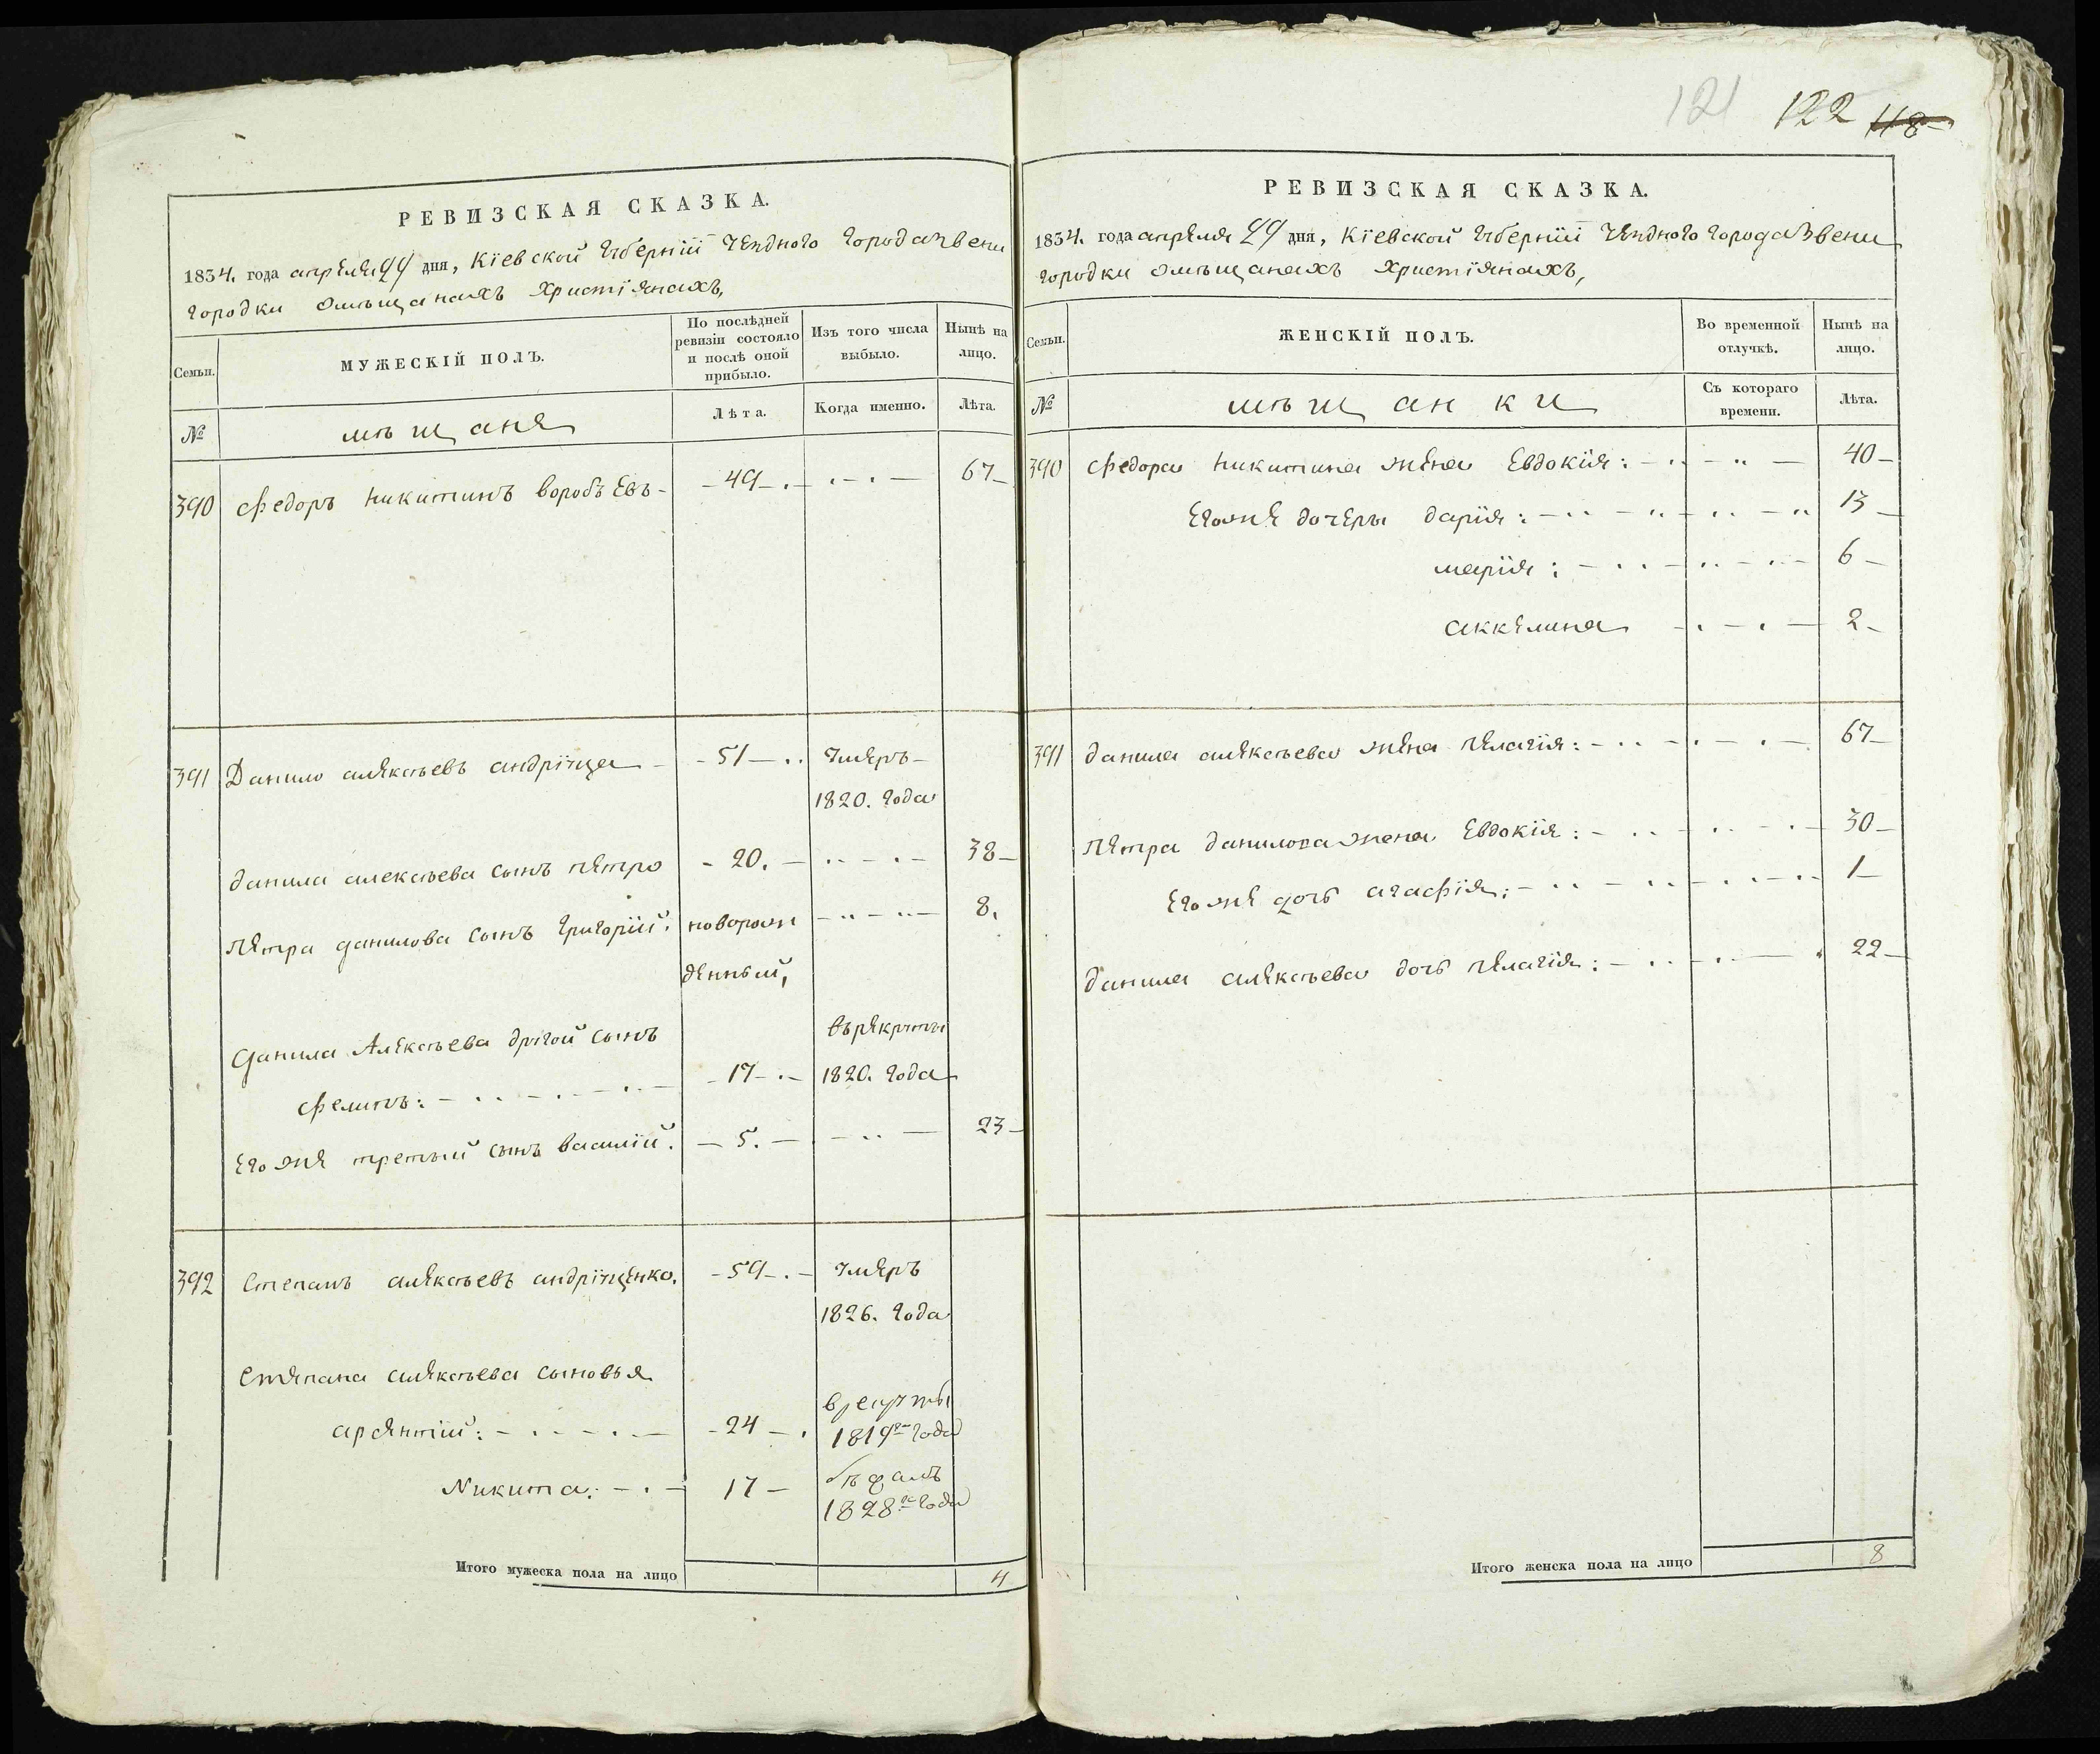 121 122 118
РЕВИЗСКАЯ СКАЗКА.
1834. года апреля 29 дня, Кіевской Губерніи Уезднаго Города Звени
городки Омѣщанахъ Христіянахъ,
Семьи. МУЖЕСКІЙ ПОЛЪ. По послѣдней ревизіи состояло и послѣ оной прибыло. Изъ того числа выбыло. Нынѣ на лицо.
№ мѣщане Лѣта. Когда именно. Лѣта.
390 Федоръ Никитинъ воробъевъ - 49 67
391 Данило алексѣевъ андріуца 51 Умеръ
1820. Года
Данила алексѣева сынъ петро 20. 38
петра данилова сынъ Григорій. новорож 8.
денный,
Данила Алексѣева другой сынъ въ рекруты
Филипъ: 17 1820. Года
Его же третый сынъ василій. 5. 23
392 Степанъ алексѣевъ андріуценко. 59 Умеръ
1826. Года
Степана алексѣева сыновья
арсентій: 24 в рекруты
1819го Года
Никита: 17 бѣжалъ
1828го Года
Итого мужеска пола на лицо 4
РЕВИЗСКАЯ СКАЗКА.
1834. года апреля 29 дня, Кіевской Губерніи Уезднаго Города Звени
городки Омѣщанахъ Христіянахъ,
Семьи. ЖЕНСКІЙ ПОЛЪ. Во временной отлучкѣ. Нынѣ на лицо.
№ мѣщанки Съ котораго времени. Лѣта.
390 Федора Никитина жена Евдокія: 40
Егоже дочеры дарія: 13
марія: 6
аккелина 2
391 данила алексѣева жена пелагія: 67
петра данилова жена Евдокія: 30
Его же дочь агафія: 1
данила алексѣева дочь пелагія: 22
Итого женска пола на лицо 8